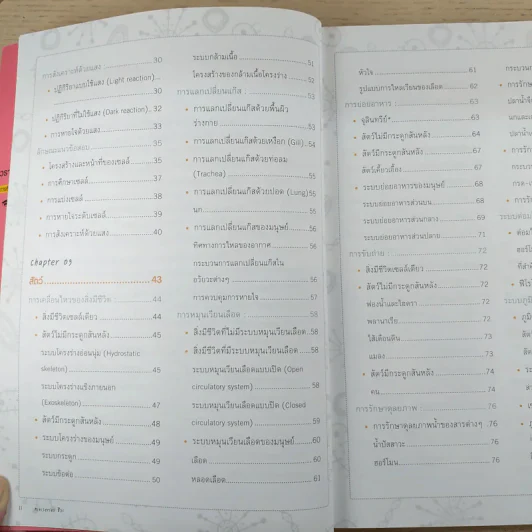 การสังเคราะห์ด้วยแสง : 30
ปฏิกิริยาแบบใช้แสง (Light reaction)...
30
ปฏิกิริยาที่ไม่ใช้แสง (Dark reaction). 32
การหายใจด้วยแสง 33
ลักษณะแนวข้อสอบ 35
โครงสร้างและหน้าที่ของเซลล์ 35
การศึกษาเซลล์ 37
การแบ่งเซลล์ 38
การหายใจระดับเซลล์ 39
การสังเคราะห์ด้วยแสง 40
Chapter 03
สัตว์ 43
การเคลื่อนไหวของสิ่งมีชีวิต 44
สิ่งมีชีวิตเซลล์เดียว 44
สัตว์ไม่มีกระดูกสันหลัง 45
ระบบโครงร่างอ่อนนุ่ม (Hydrostatic
skeleton) 45
ระบบโครงร่างแข็งภายนอก
(Exoskeleton) 47
สัตว์มีกระดูกสันหลัง 48
ระบบโครงร่างของมนุษย์ 49
ระบบกระดูก 49
ระบบข้อต่อ 50
ระบบกล้ามเนื้อ 51
โครงสร้างของกล้ามเนื้อโครงร่าง 52
การแลกเปลี่ยนแก๊ส 53
การแลกเปลี่ยนแก๊สด้วยพื้นผิว
ร่างกาย 53
การแลกเปลี่ยนแก๊สด้วยเหงือก (Gill) 54
การแลกเปลี่ยนแก๊สด้วยท่อลม
(Trachea) 55
การแลกเปลี่ยนแก๊สด้วยปอด (Lung) 55
นก 55
การแลกเปลี่ยนแก๊สของมนุษย์ 56
ทิศทางการไหลของอากาศ 56
กระบวนการแลกเปลี่ยนแก๊สใน
อวัยวะต่างๆ 56
การควบคุมการหายใจ 57
การหมุนเวียนเลือด 58
สิ่งมีชีวิตที่ไม่มีระบบหมุนเวียนเลือด 58
สิ่งมีชีวิตที่มีระบบหมุนเวียนเลือด 58
ระบบหมุนเวียนเลือดแบบเปิด (Open
circulatory system) 58
ระบบหมุนเวียนเลือดแบบปิด (Closed
circulatory system) 59
ระบบหมุนเวียนเลือดของมนุษย์ 60
เลือด 60
หลอดเลือด 61
หัวใจ 61
รูปแบบการไหลเวียนของเลือด 62
การย่อยอาหาร 63
จุลินทรีย์* 63
สัตว์ไม่มีกระดูกสันหลัง 64
สัตว์มีกระดูกสันหลัง 67
สัตว์เคี้ยวเอื้อง 67
ระบบย่อยอาหารของมนุษย์ 68
ระบบย่อยอาหารส่วนบน 68
ระบบย่อยอาหารส่วนกลาง 69
ระบบย่อยอาหารส่วนปลาย 71
การขับถ่าย 72
สิ่งมีชีวิตเซลล์เดียว 72
สัตว์ไม่มีกระดูกสันหลัง 72
ฟองน้ำและไฮดรา 72
พลานาเรีย 73
ไส้เดือนดิน 73
แมลง 73
สัตว์มีกระดูกสันหลัง 74
คน 74
การรักษาดุลยภาพ 76
การรักษาดุลยภาพน้ำของสารต่างๆ 76
น้ำปัสสาวะ 76
ฮอร์โมน 76